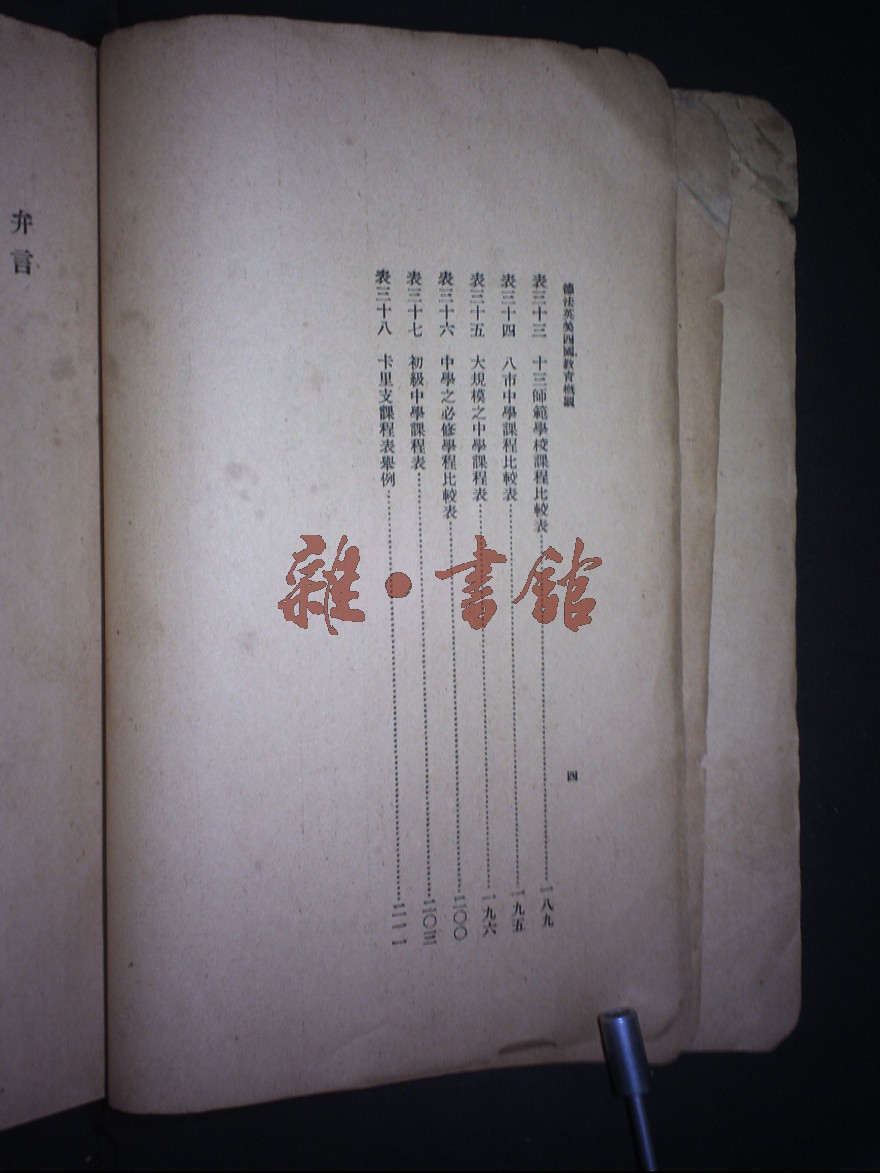 德法英美四國教育概觀
四
表三十三　十三師範學校課程比較表………一八九
表三十四　八市中學課程比較表………一九五
表三十五　大規模之中學課程表………一九六
表三十六　中學之必修學程比較表………二〇〇
表三十七　初級中學課程表………二〇三
表三十八　卡里支課程表舉例………二一一
弁言
雜·書館